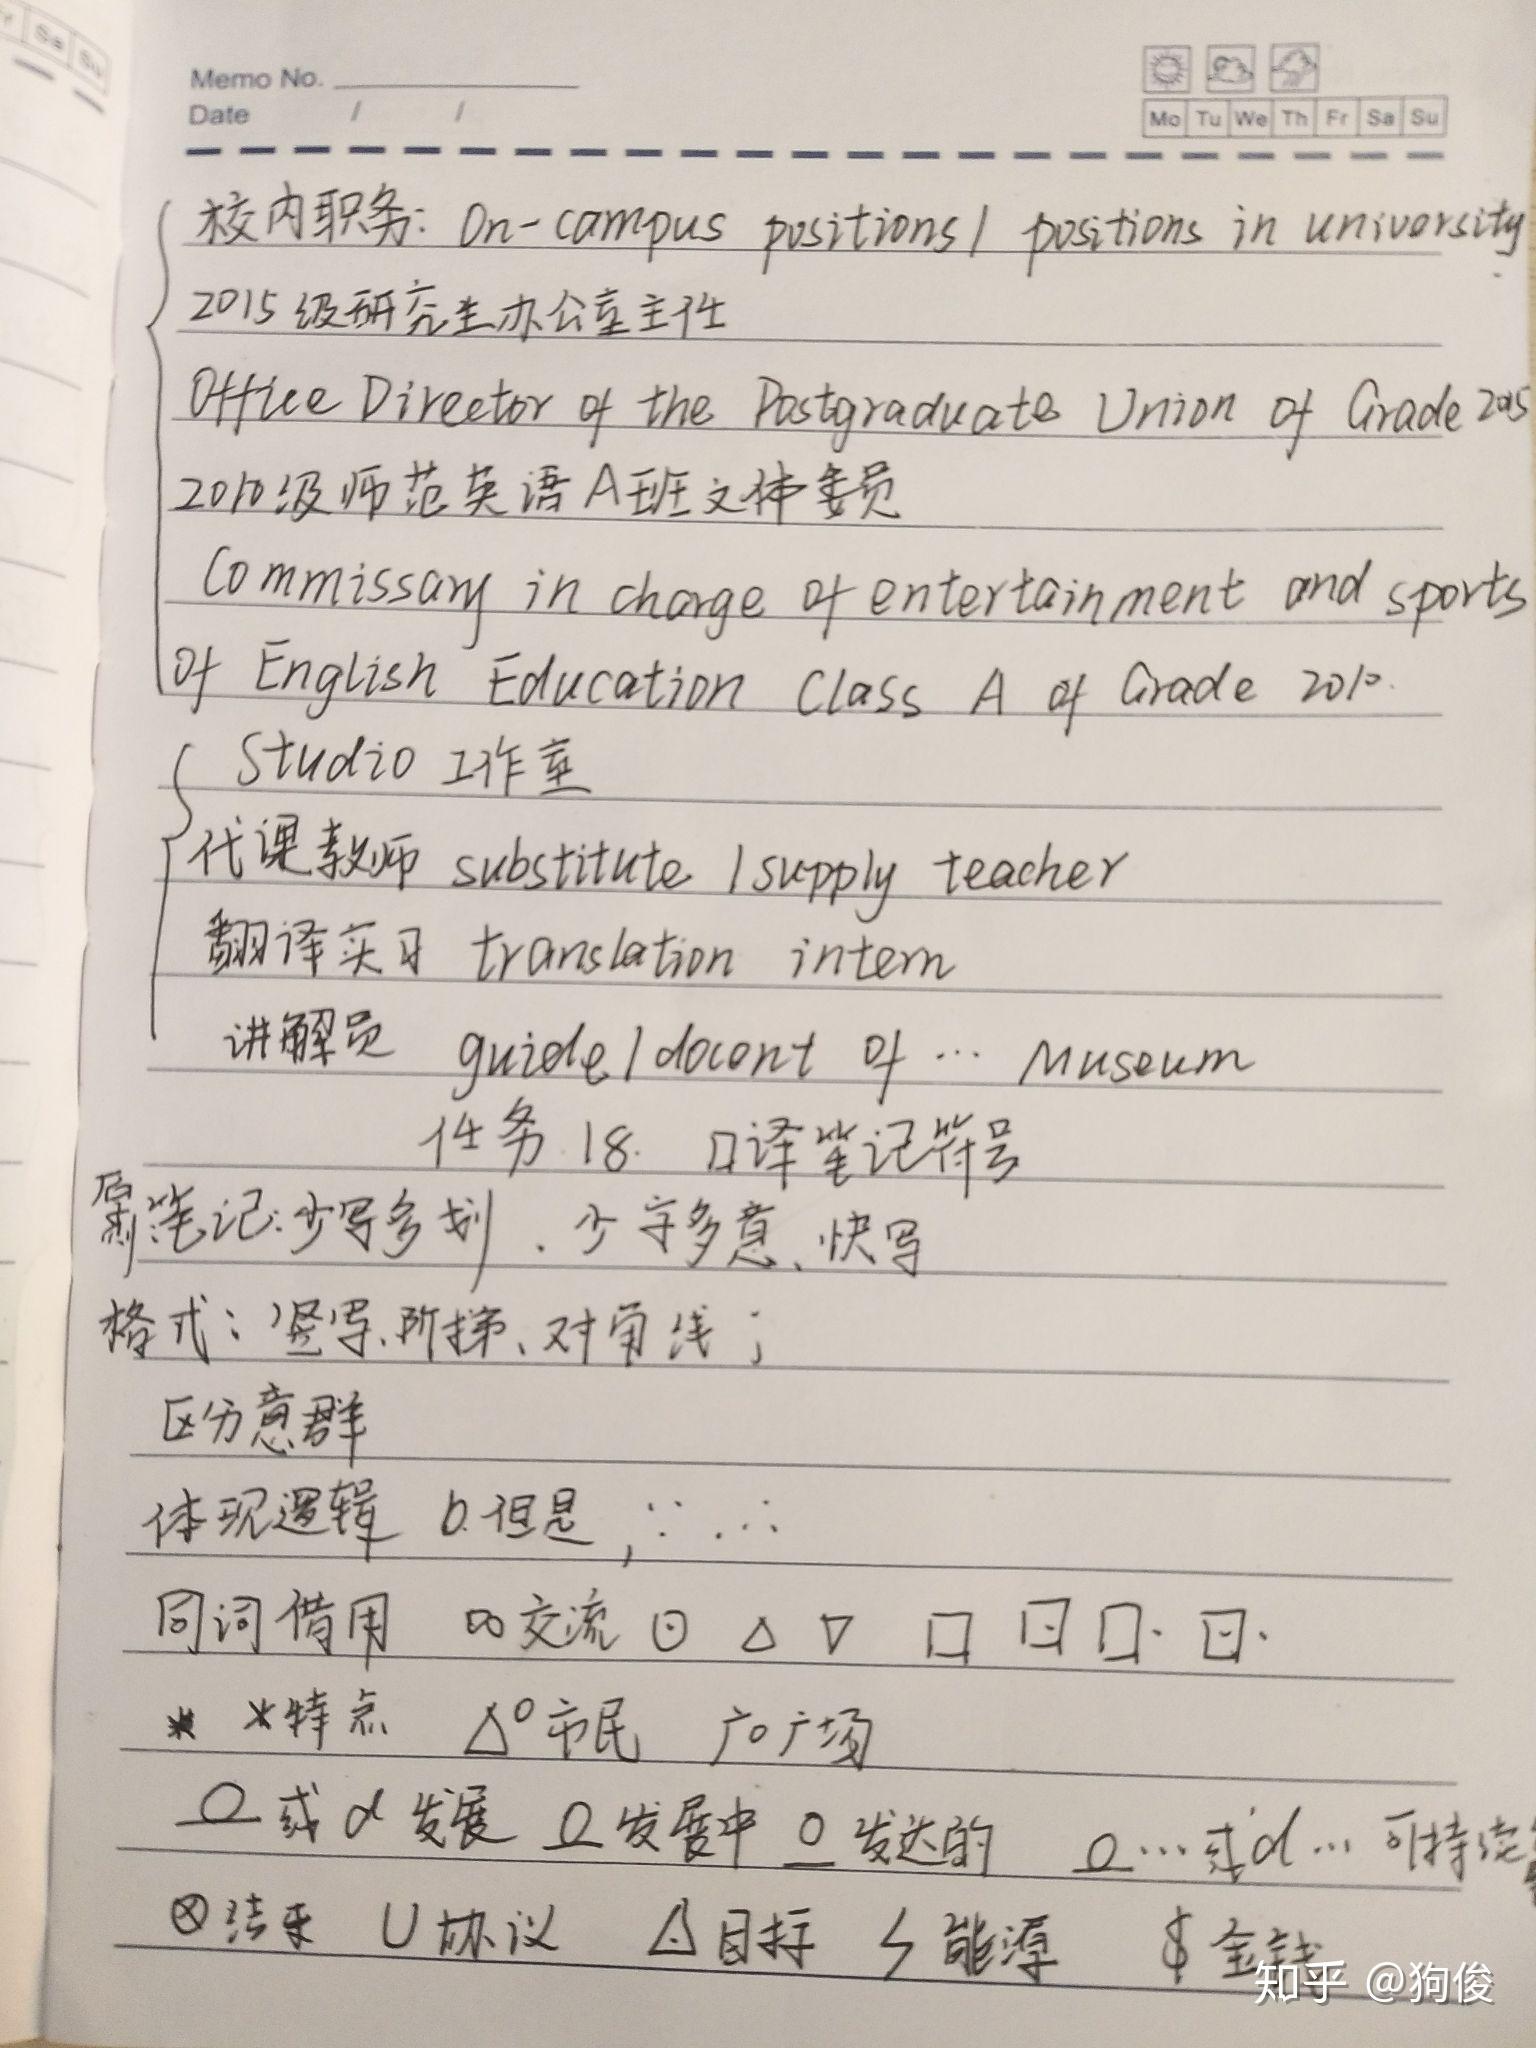 Sa Su
Memo No.
Date / /
Mo Tu We Th Fr Sa Su
校内职务: On-campus positions/ positions in university
2015级研究生办公室主任
Office Director of the Postgraduate Union of Grade 2015
2010级师范英语A班文体委员
Commissary in charge of entertainment and sports
of English Education Class A of Grade 2010.
Studio 工作室
代课教师 substitute /supply teacher
翻译实习 translation intern
讲解员 guide/docent of … Museum
任务18. 口译笔记符号
笔记:少写多划、少字多意、快写
格式: 竖写、阶梯、对角线;
区分意群
体现逻辑 b.但是, ∵ . ∴
同词借用 ∞交流 ⊙ △ ▽ □ ⊡ □· ⊡·
* *特点 △° 市民 广o广场
Ω 或 d 发展 Ω 发展中 o 发达的 Ω … 或 d … 可持续
⊗结束 U协议 目标 能源 $ 金钱
知乎 @狗俊